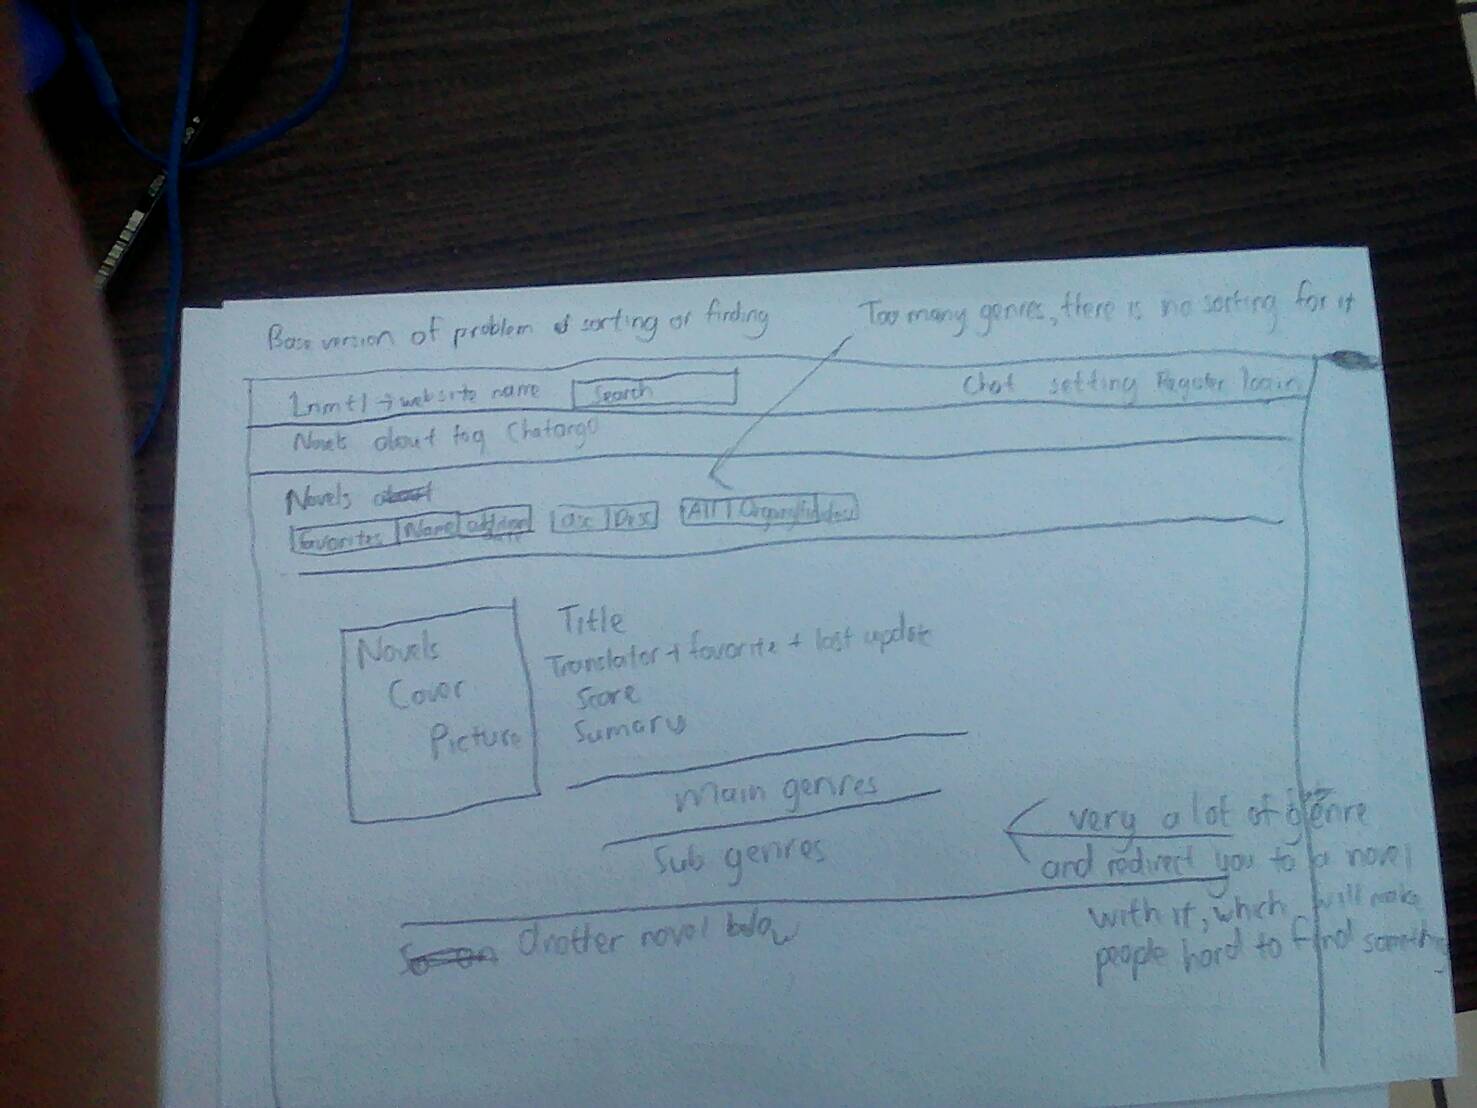 Base version of problem of sorting or finding
Too many genres, there is no sorting for it
lnmtl → website name
Search
Chat setting Register login
Novels about faq
Novels about
Favorites Name addition date
asc Desc
All
Novels
Cover
Picture
Title
Translator + favorite + last update
Score
Sumary
main genres
Sub genres
very a lot of genre
and redirect you to a novel
with it, which will make
people hard to find something
So on Another novel below